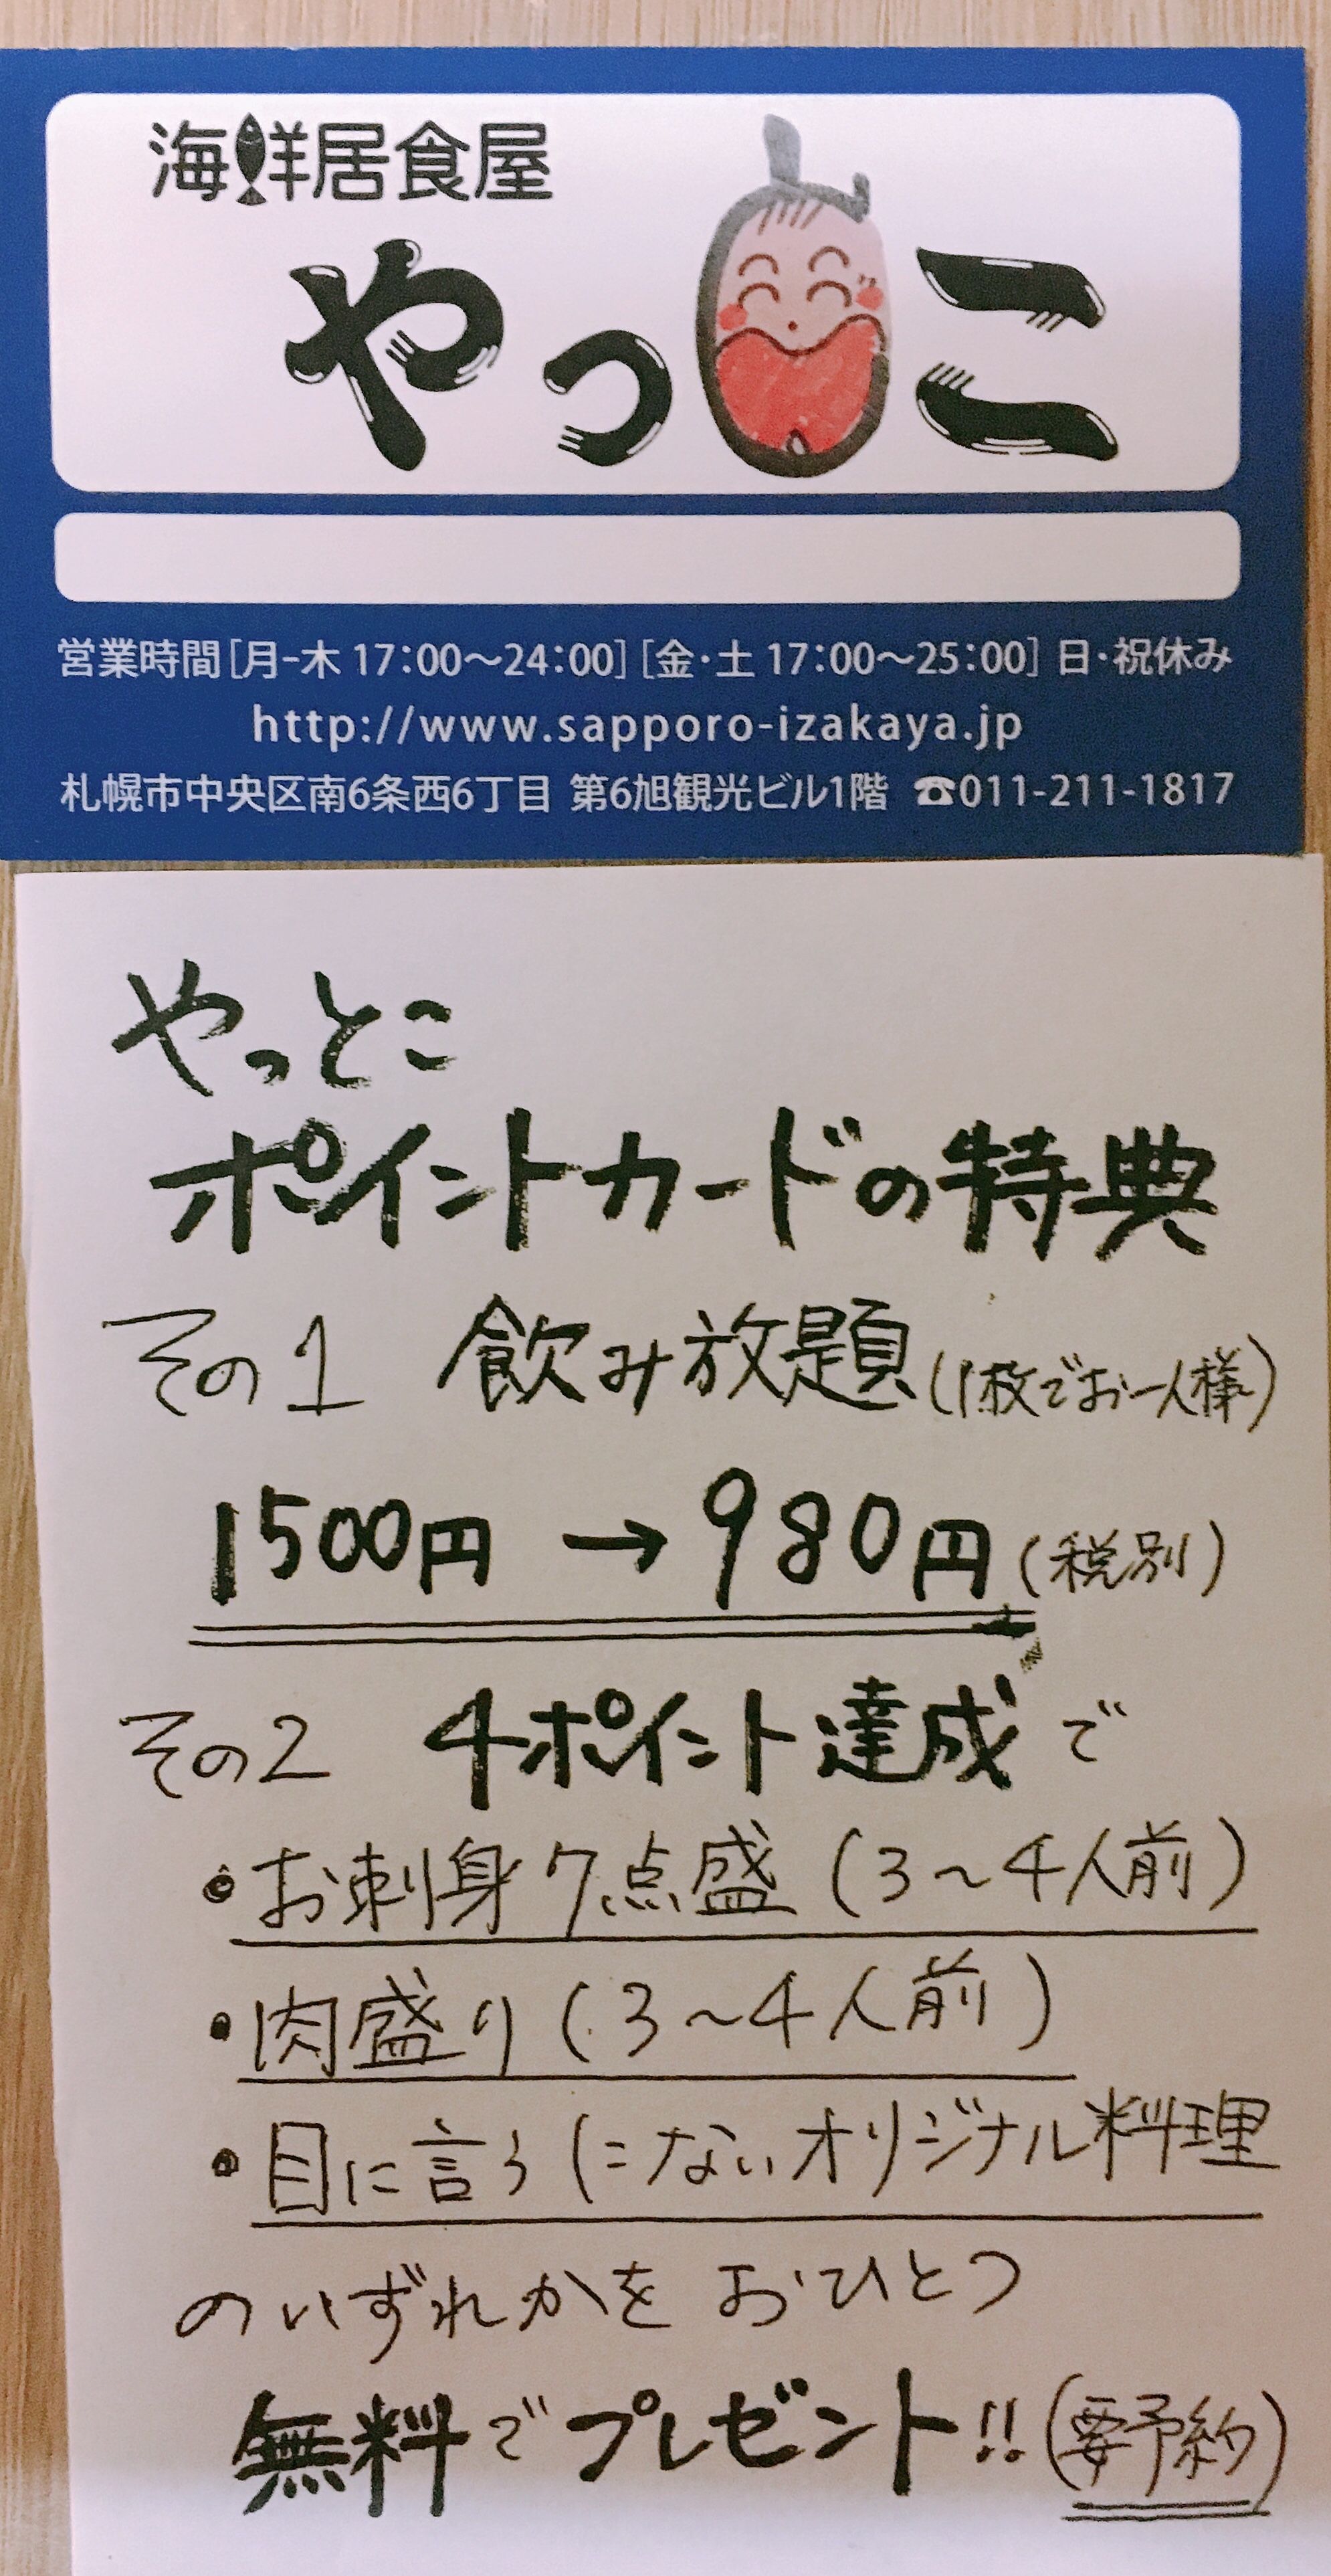 海洋居食屋
やっとこ
営業時間[月-木 17:00～24:00] [金・土 17:00～25:00] 日・祝休み
http://www.sapporo-izakaya.jp
札幌市中央区南6条西6丁目 第6旭観光ビル1階 ☎011-211-1817
やっとこ
ポイントカードの特典
その1 飲み放題 (1枚でお一人様)
1500円 → 980円 (税別)
その2 4ポイント達成で
・お刺身7点盛 (3～4人前)
・肉盛り (3～4人前)
・目に言うになないオリジナル料理
のいずれかを おひとつ
無料でプレゼント!! (要予約)